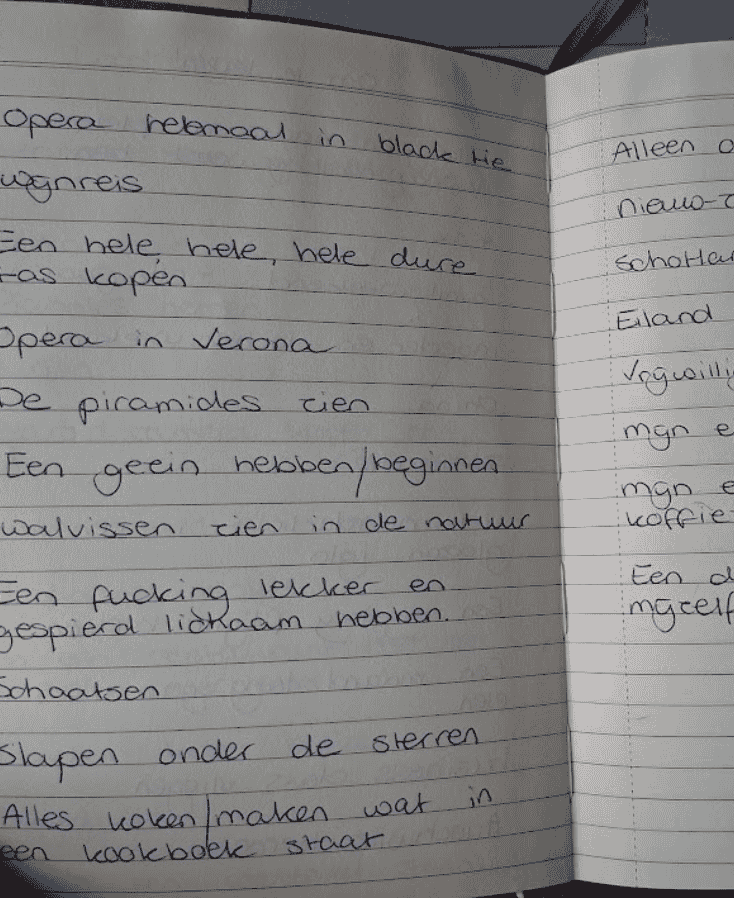 Opera helemaal in black tie
wijnreis
Een hele, hele, hele dure
tas kopen
Opera in Verona
De piramides zien
Een gezin hebben/beginnen
walvissen zien in de natuur
Een fucking lekker en
gespierd lichaam hebben.
Schaatsen
Slapen onder de sterren
Alles koken/maken wat in
een kookboek staat
Alleen
nieuw-z
schotlan
Eiland
vrijwillig
mijn e
mijn e
koffie
Een d
mijzelf